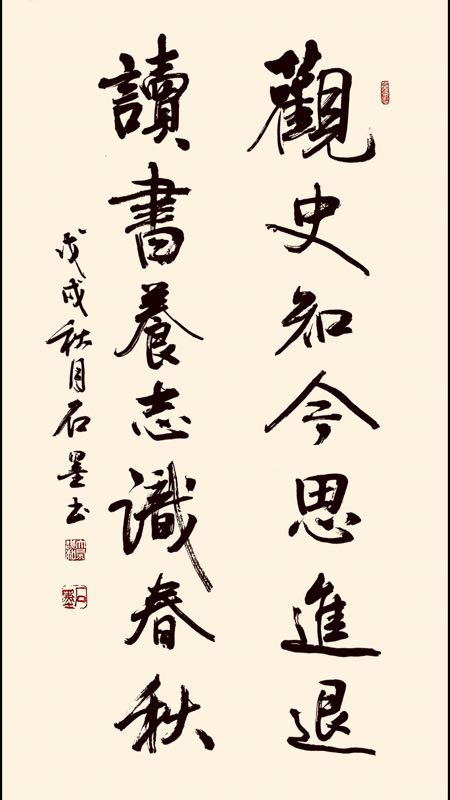 觀史知今思進退
讀書養志識春秋
戊戌秋月石墨书
石墨